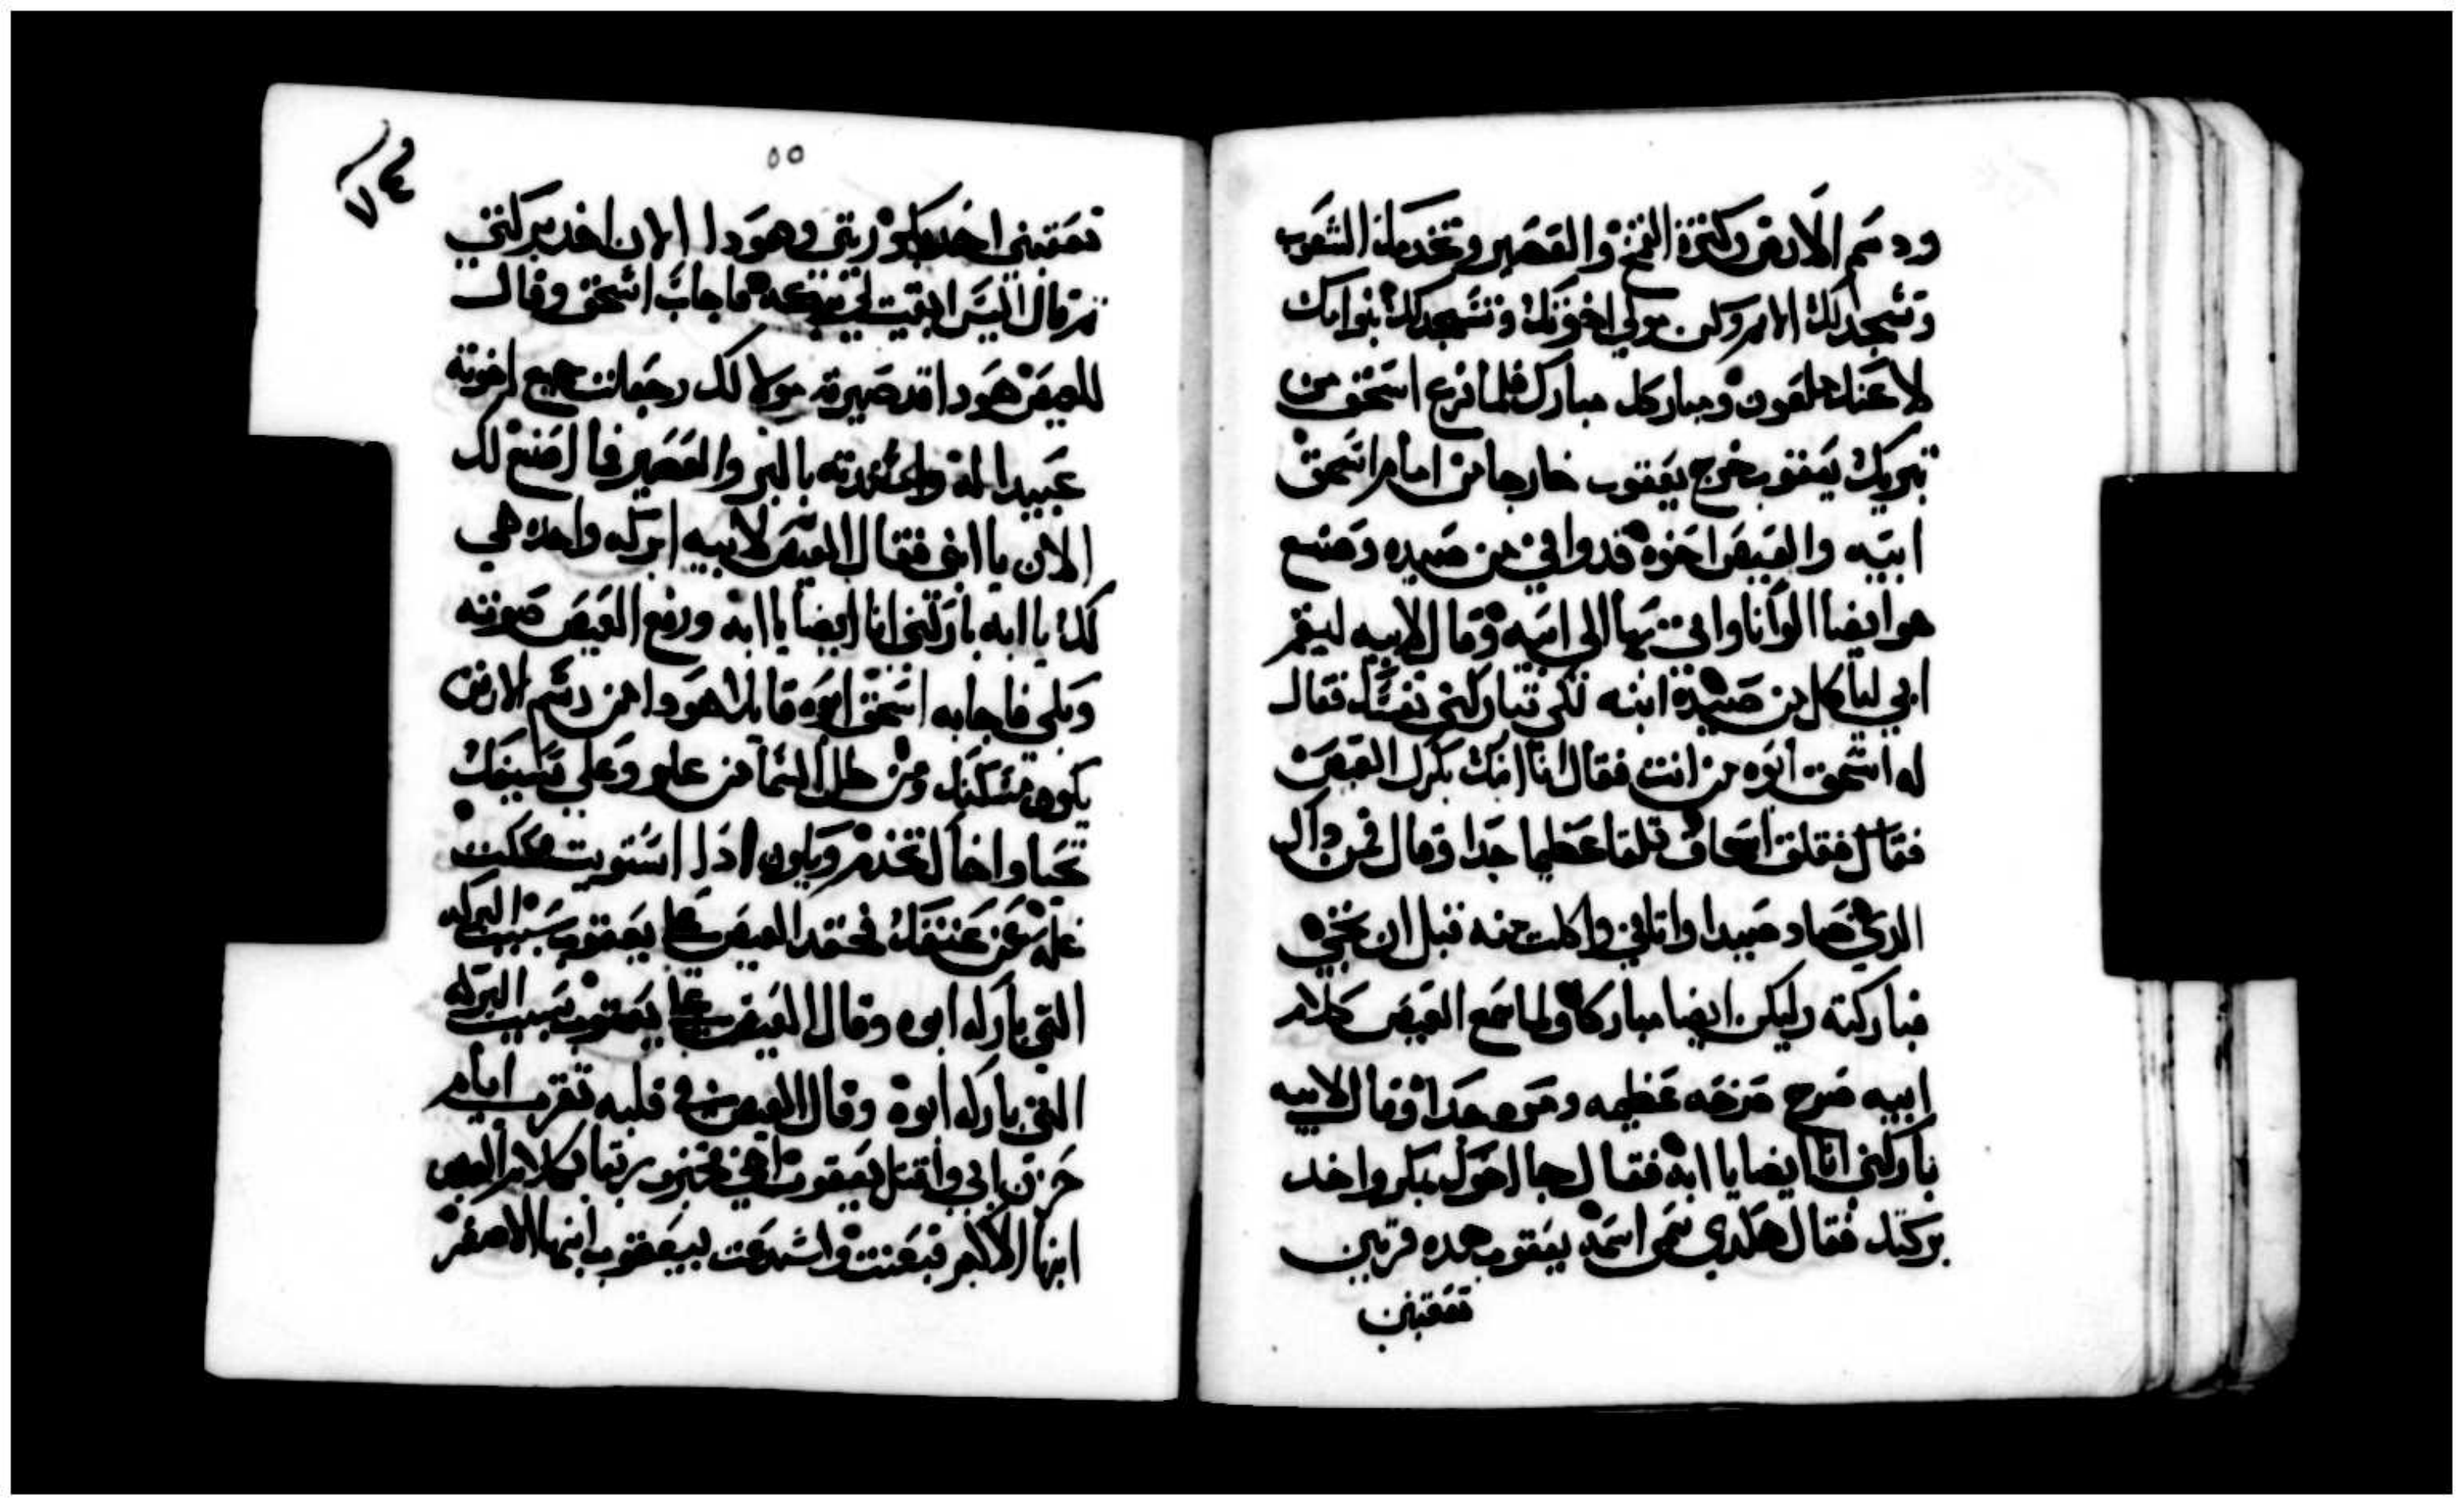 ودسم الارض وكثرة القمح والعصير وتخدمك الشعوب
وتسجد لك الامم وكن مولي اخوتك وتسجد لك بنوا امك
لاعنك ملعون ومباركك مبارك فلما فرغ اسحق من
تبريك يعقوب خرج يعقوب خارجا من امام اسحق
ابيه والعيص اخوه قد وافي من صيده وصنع
هو ايضا الوانا واتي بها الي ابيه وقال لابيه ليقم
ابي لياكل من صيدة ابنه لكي تباركني نفسك فقال
له اسحق ابوه من انت فقال انا ابنك بكرك العيص
فقال فقلق اسحاق قلقا عظيما جدا وقال فمن داك
الدي صاد صيدا واتاني واكلت منه قبل ان تجي
فباركته وليكن ايضا مباركا ولما سمع العيص كلام
ابيه صرخ صرخه عظيمه ومره جدا وقال لابيه
باركني انا ايضا يا ابه فقال جا اخوك بمكر واخد
بركتك فقال هكدي سمي اسمه يعقوب هده مرتين
تعقبني
٥٥
٧٤
تعقبني اخد بكوريتي وهودا الان اخد بركتي
ثم قال اليس ابقيت لي بركه فاجاب اسحق وقال
للعيص هودا قد صيرته مولا لك وجعلت جميع اخوته
عبيدا له وايدته بالبر والعصير فما اصنع لك
الان يا ابني فقال العيص لابيه ابركه واحده هي
لك يا ابه باركني انا ايضا يا ابه ورفع العيص صوته
وبكي فاجابه اسحق ابوه قايلا هودا من دسم الارض
يكون مسكنك ومن طل السما من علو وعلي سيفك
تحيا واخاك تخدم ويكون ادا استويت فككت
غله عن عنقك فحقد العيص علي يعقوب بسبب البركه
التي باركه ابوه وقال العيص علي يعقوب بسبب البركه
التي باركه ابوه وقال العيص في قلبه تقرب ايام
حزن ابي واقتل يعقوب اخي فخبرو ربقا بكلام العيص
ابنها الاكبر فبعثت واستدعت بيعقوب ابنها الاصغر